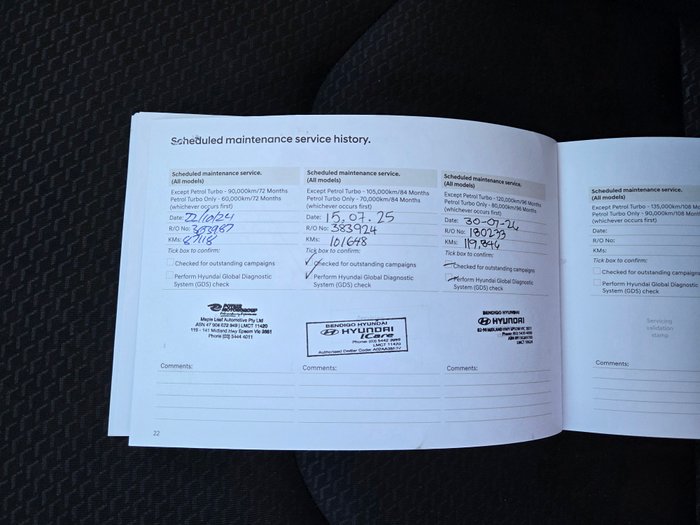 Scheduled maintenance service history.
Scheduled maintenance service.
(All models)
Except Petrol Turbo - 90,000km/72 Months
Petrol Turbo Only - 60,000km/72 Months
(whichever occurs first)
Date: 22/10/24
R/O No:
KMs: 87118
Tick box to confirm:
Checked for outstanding campaigns
Perform Hyundai Global Diagnostic
System (GDS) check
Maple Leaf Automotive Pty Ltd
LMCT 11420
119 - 141 Midland Hwy Epsom Vic 3551
Phone (03) 5444 4011
Comments:
Scheduled maintenance service.
(All models)
Except Petrol Turbo - 105,000km/84 Months
Petrol Turbo Only - 70,000km/84 Months
(whichever occurs first)
Date: 15.07.25
R/O No: 383924
KMs: 101648
Tick box to confirm:
Checked for outstanding campaigns
Perform Hyundai Global Diagnostic
System (GDS) check
BENDIGO HYUNDAI
HYUNDAI
iCare
LMCT 11420
Authorised Dealer Code:
Comments:
Scheduled maintenance service.
(All models)
Except Petrol Turbo - 120,000km/96 Months
Petrol Turbo Only - 80,000km/96 Months
(whichever occurs first)
Date: 30-07-26
R/O No: 130233
KMs: 119,846
Tick box to confirm:
Checked for outstanding campaigns
Perform Hyundai Global Diagnostic
System (GDS) check
BENDIGO HYUNDAI
HYUNDAI
Comments:
22
Scheduled maintenance service.
(All models)
Except Petrol Turbo - 135,000km/108 M
Petrol Turbo Only - 90,000km/108 M
(whichever occurs first)
Date:
R/O No:
KMs:
Tick box to confirm:
Checked for outstanding campaigns
Perform Hyundai Global Diagnostic
System (GDS) check
Servicing
validation
stamp
Comments: